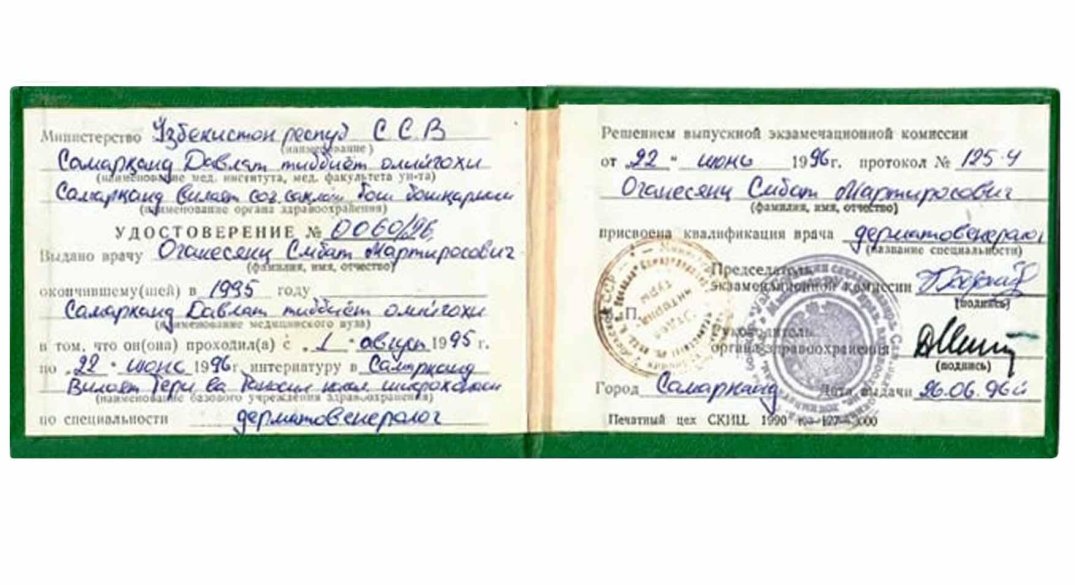 Министерство Узбекистон респуб С С В
(наименование)
Самарқанд Давлат тиббиёт олийгохи
(наименование мед. института, мед. факультета ун-та)
Самарқанд вилоят соғ. сақлаш бош бошқармаси
(наименование органа здравоохранения)
УДОСТОВЕРЕНИЕ № 0060/96
Выдано врачу Оганесянц Смбат Мартиросович
(фамилия, имя, отчество)
окончившему(шей) в 1995 году
Самарқанд Давлат тиббиёт олийгохи
(наименование медицинского вуза)
в том, что он(она) проходил(а) с „1" август 1995 г.
по „22" июнь 1996 г. интернатуру в Самарканд
Вилоят Тери ва
(наименование базового учреждения здравоохранения)
по специальности дерматовенеролог
Решением выпускной экзаменационной комиссии
от „22" июнь 1996 г. протокол № 125-4
Оганесянц Смбат Мартиросович
(фамилия, имя, отчество)
присвоена квалификация врача дерматовенеролог
(название специальности)
Председатель
экзаменационной комиссии
(подпись)
М. П.
Руководитель
органа здравоохранения
(подпись)
Город Самарканд Дата выдачи 26.06.96й
Печатный цех СКИЦ 1990 127 3000